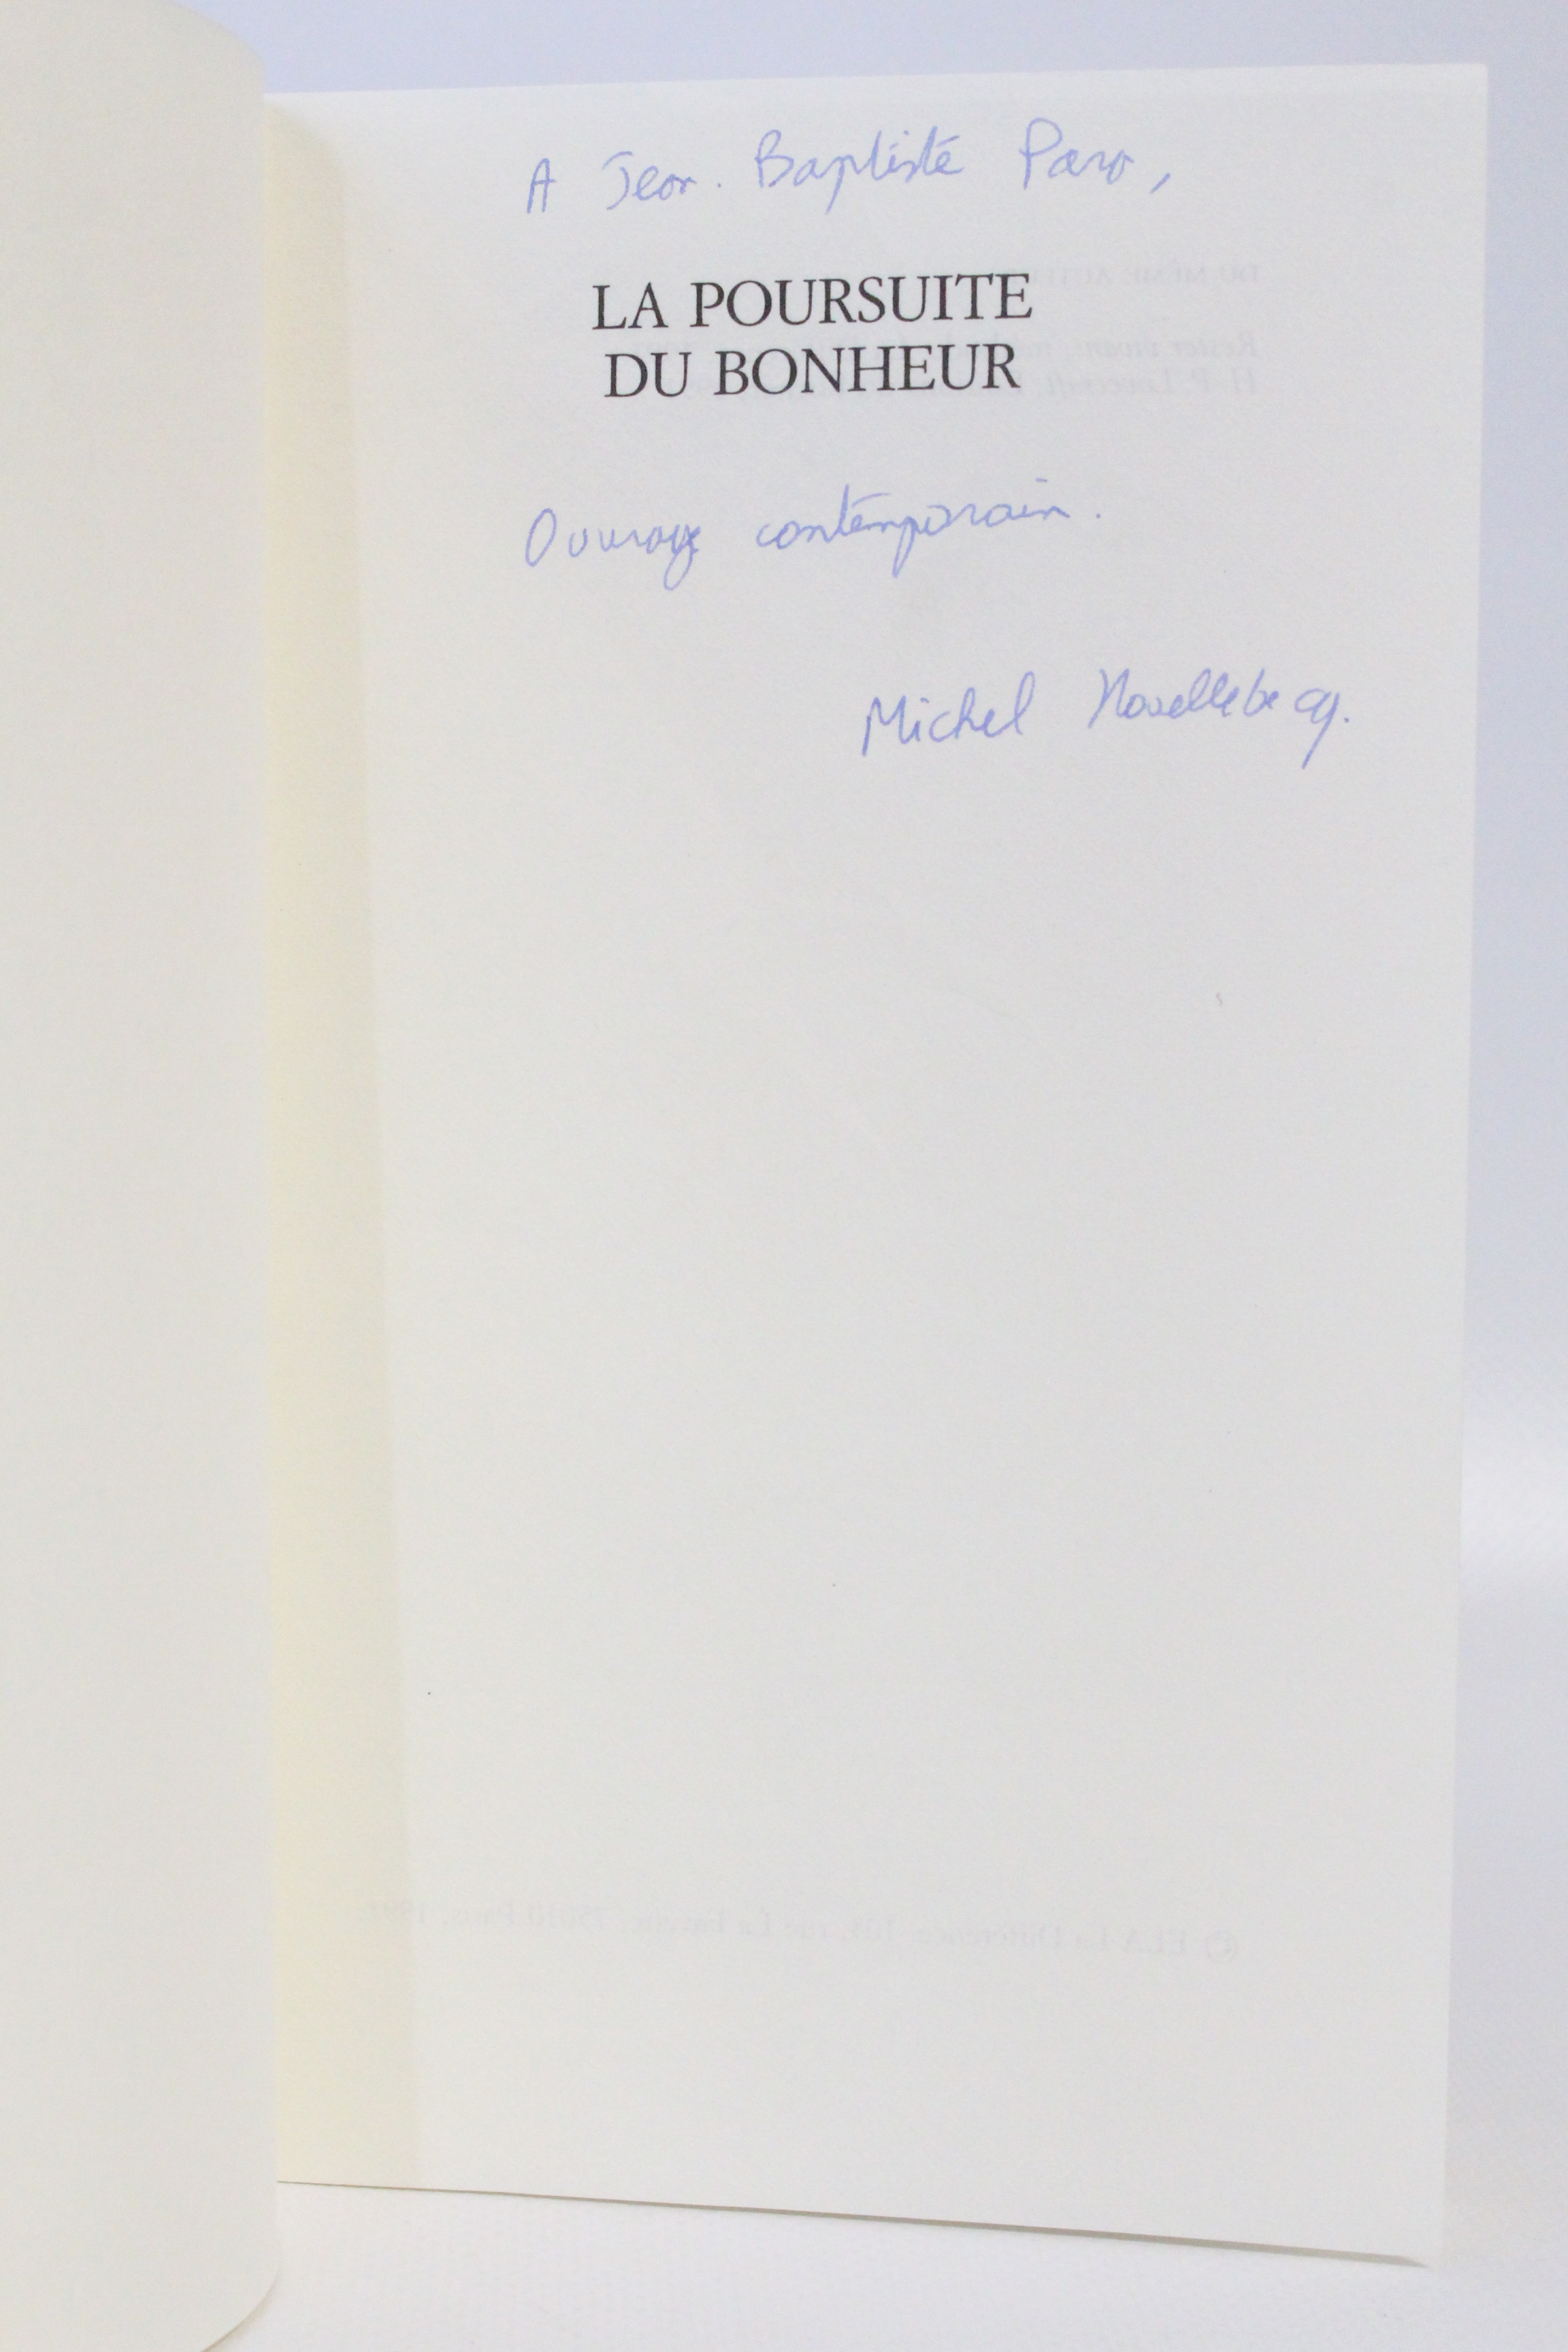 A Jean-Baptiste Para,
LA POURSUITE
DU BONHEUR
Ouvrage contemporain.
Michel Houellebecq.